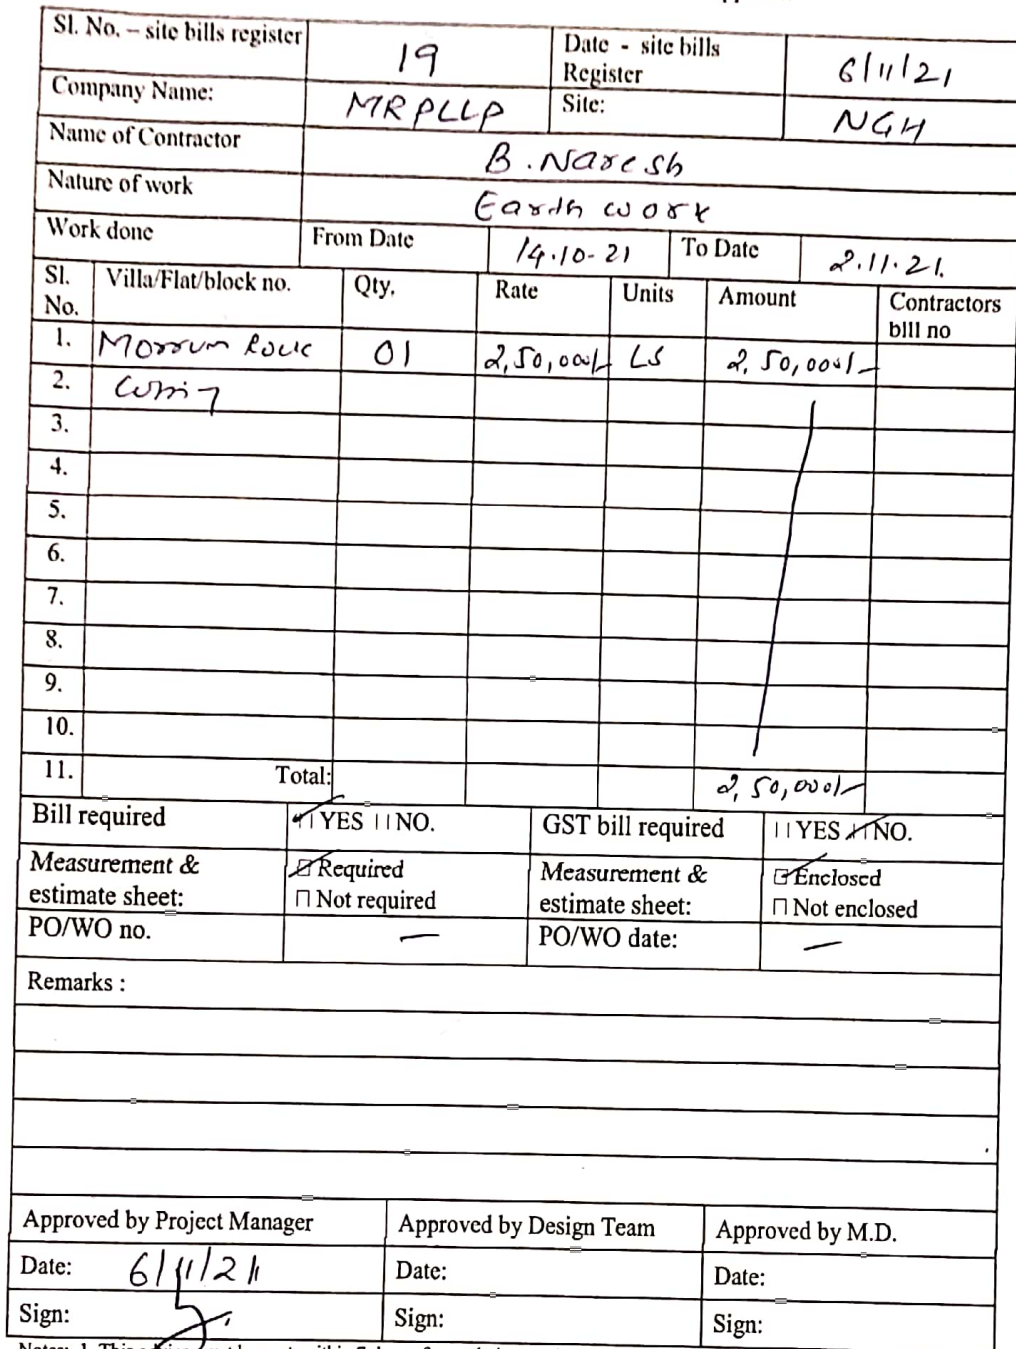 Sl. No. – site bills register 19 Date - site bills Register 6/11/21
Company Name: MRPLLP Site: NGH
Name of Contractor B. Naresh
Nature of work Earth work
Work done From Date 14.10-21 To Date 2.11.21.
Sl. No. Villa/Flat/block no. Qty. Rate Units Amount Contractors bill no
1. Morrum Rock 01 2,50,000/- LS 2,50,000/-
2.
3.
4.
5.
6.
7.
8.
9.
10.
11. Total: 2,50,000/-
Bill required YES NO. GST bill required YES NO.
Measurement & estimate sheet: Required Measurement & estimate sheet: Enclosed
Not required Not enclosed
PO/WO no. — PO/WO date: —
Remarks :
Approved by Project Manager Approved by Design Team Approved by M.D.
Date: 6/11/21 Date: Date:
Sign: Sign: Sign: